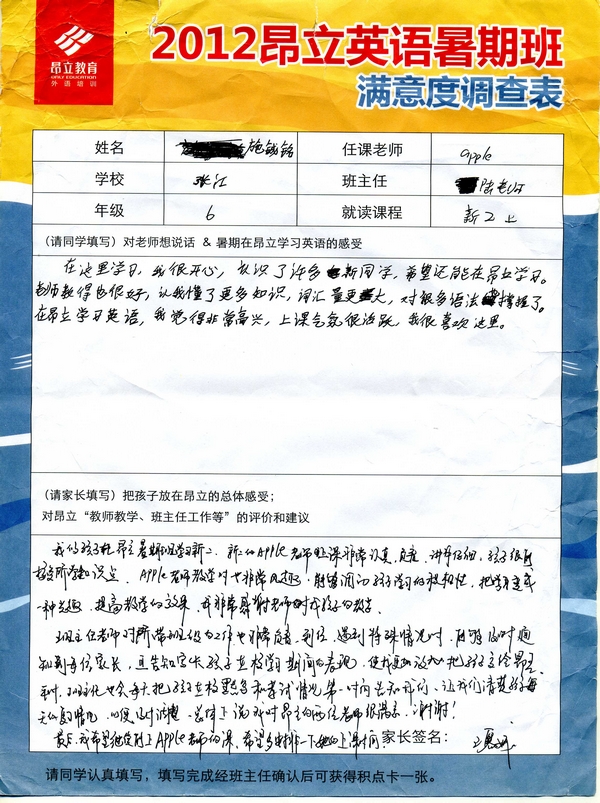 昂立教育
ONLY EDUCATION
外语培训
2012昂立英语暑期班
满意度调查表
姓名 施钱铭 任课老师 apple
学校 张江 班主任 陈老师
年级 6 就读课程 新2上
(请同学填写)对老师想说话 & 暑期在昂立学习英语的感受
在这里学习,我很开心,认识了许多新同学,希望还能在昂立学习。
老师教得也很好,让我懂了更多知识,词汇量更大,对很多语法掌握了。
在昂立学习英语,我觉得非常高兴,上课气氛很活跃,我很喜欢这里。
(请家长填写)把孩子放在昂立的总体感受;
对昂立“教师教学、班主任工作等”的评价和建议
我的孩子在昂立暑期班学习新二,新二的Apple老师上课非常认真,负责,讲解仔细,孩子很
所 识点。Apple老师教学时也非常风趣, 孩子学习的积极性,把学习变成
一种兴趣,提高教学的效果,我非常感谢老师对我孩子的教学
班主任老师对所带班级的工作也非常负责,到位,遇到特殊情况时,
知到每位家长,且告知家长孩子在校学习期间的表现,使我更加放心把孩子交给昂立
同时,班主任也会每天把孩子在校默写和考试情况第一时间告知我们,让我们清楚孩子每
天的 情况,以便及时 总体上说我对昂立的两位老师很满意,谢谢!
最后,我希望继续上Apple老师的课,希望多安排一下她的上课时间 家长签名:
请同学认真填写,填写完成经班主任确认后可获得积点卡一张。